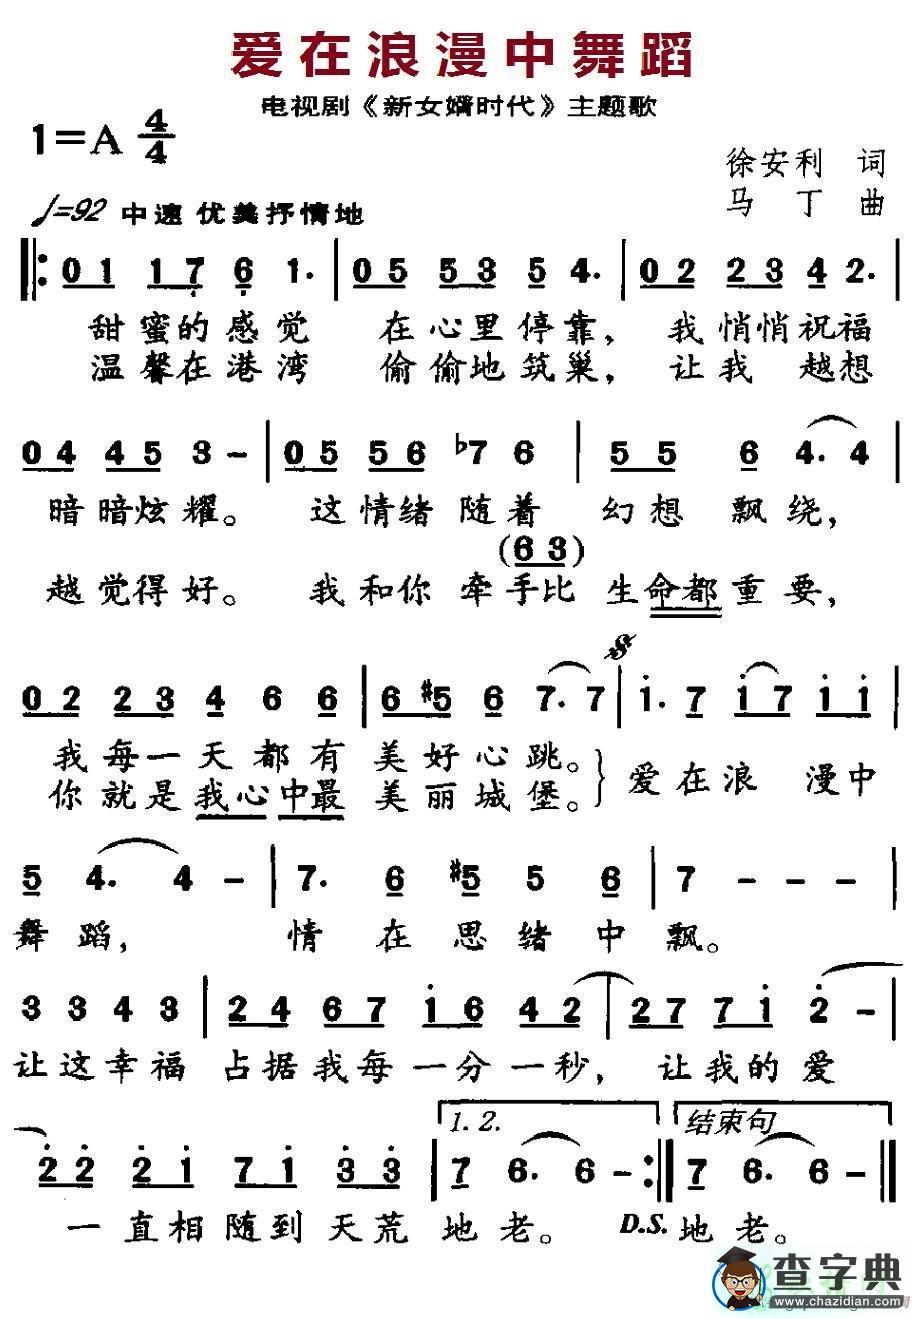 爱在浪漫中舞蹈
电视剧《新女婿时代》主题歌
1=A 4/4
徐安利 词
♩=92 中速 优美抒情地
马丁 曲
01 17 6 1. | 05 53 5 4. | 02 23 4 2. |
甜蜜的感觉 在心里停靠, 我悄悄祝福
温馨在港湾 偷偷地筑巢, 让我 越想
04 45 3 - | 05 56 ♭7 6 | 55 6 4. 4 |
暗暗炫耀。 这情绪随着 幻想 飘绕,
(63)
越觉得好。 我和你 牵手比 生命都重要,
02 23 4 6 6 | 6 #5 6 7. 7 | 1. 7 17 11 |
我每一天都有 美好心跳。
你就是我心中最 美丽城堡。
爱在浪 漫中
5 4. 4 - | 7. 6 #5 5 6 | 7 - - - |
舞蹈, 情在思绪中飘。
3 3 4 3 | 24 67 16 42 | 27 71 2 - |
让这幸福 占据我每一分一秒, 让我的爱
1. 2. 结束句
22 21 71 33 | 7 6. 6 - :| 7 6. 6 - ||
一直相随到天荒 地老。 D.S. 地老。
查字典
www.chazidian.com